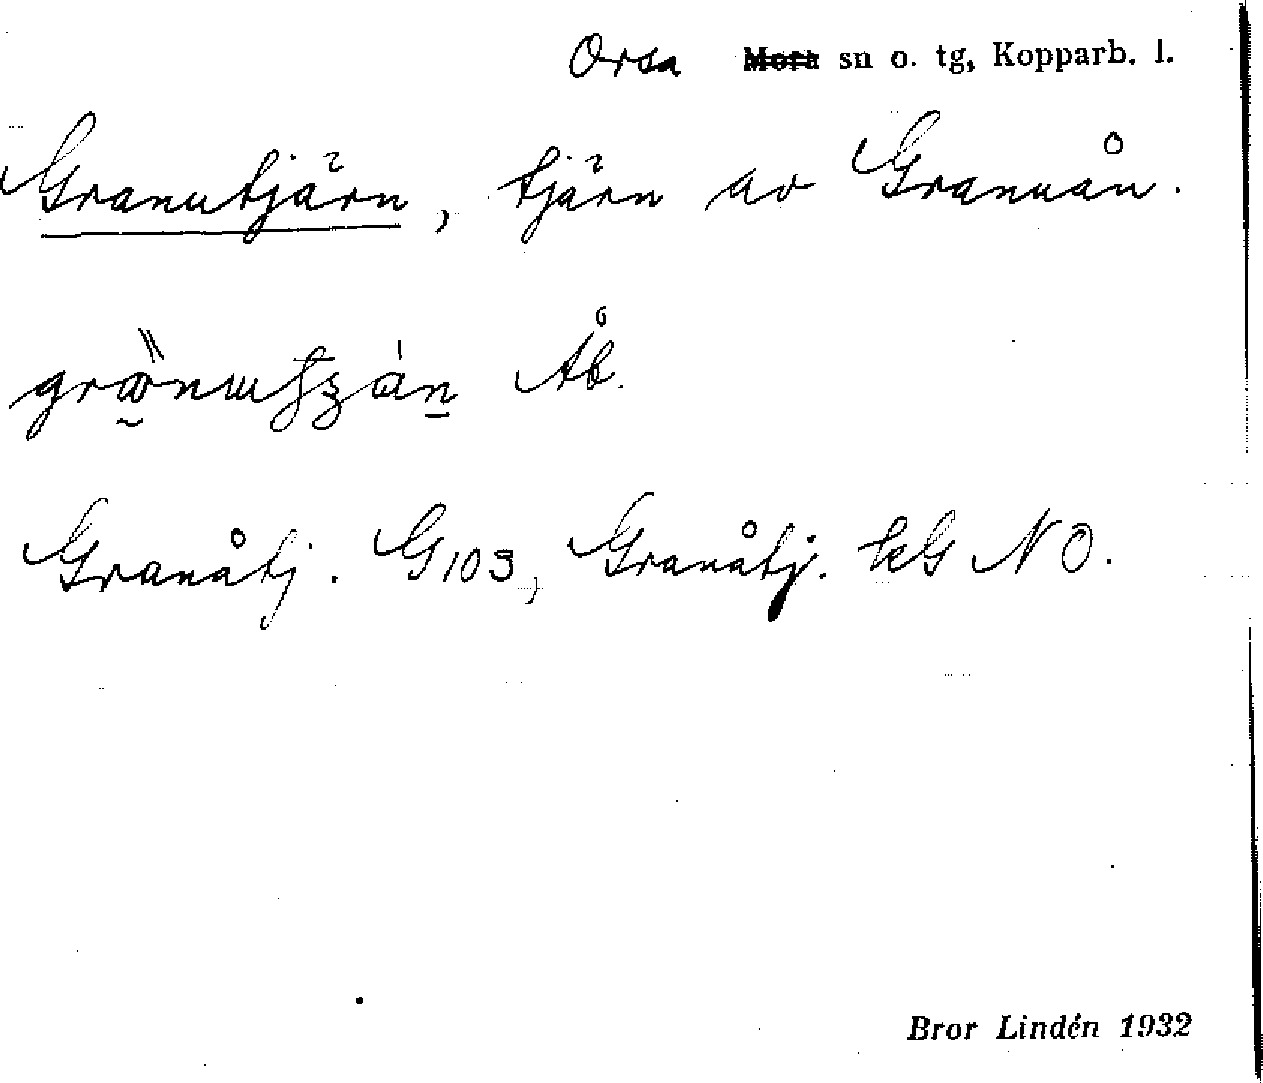 Orsa ~~Mora~~ sn o. tg, Kopparb. l.
Granutjärn, tjärn av Granuån.
Åb.
Granåtj. G103, Granåtj. kG NO.
Bror Lindén 1932